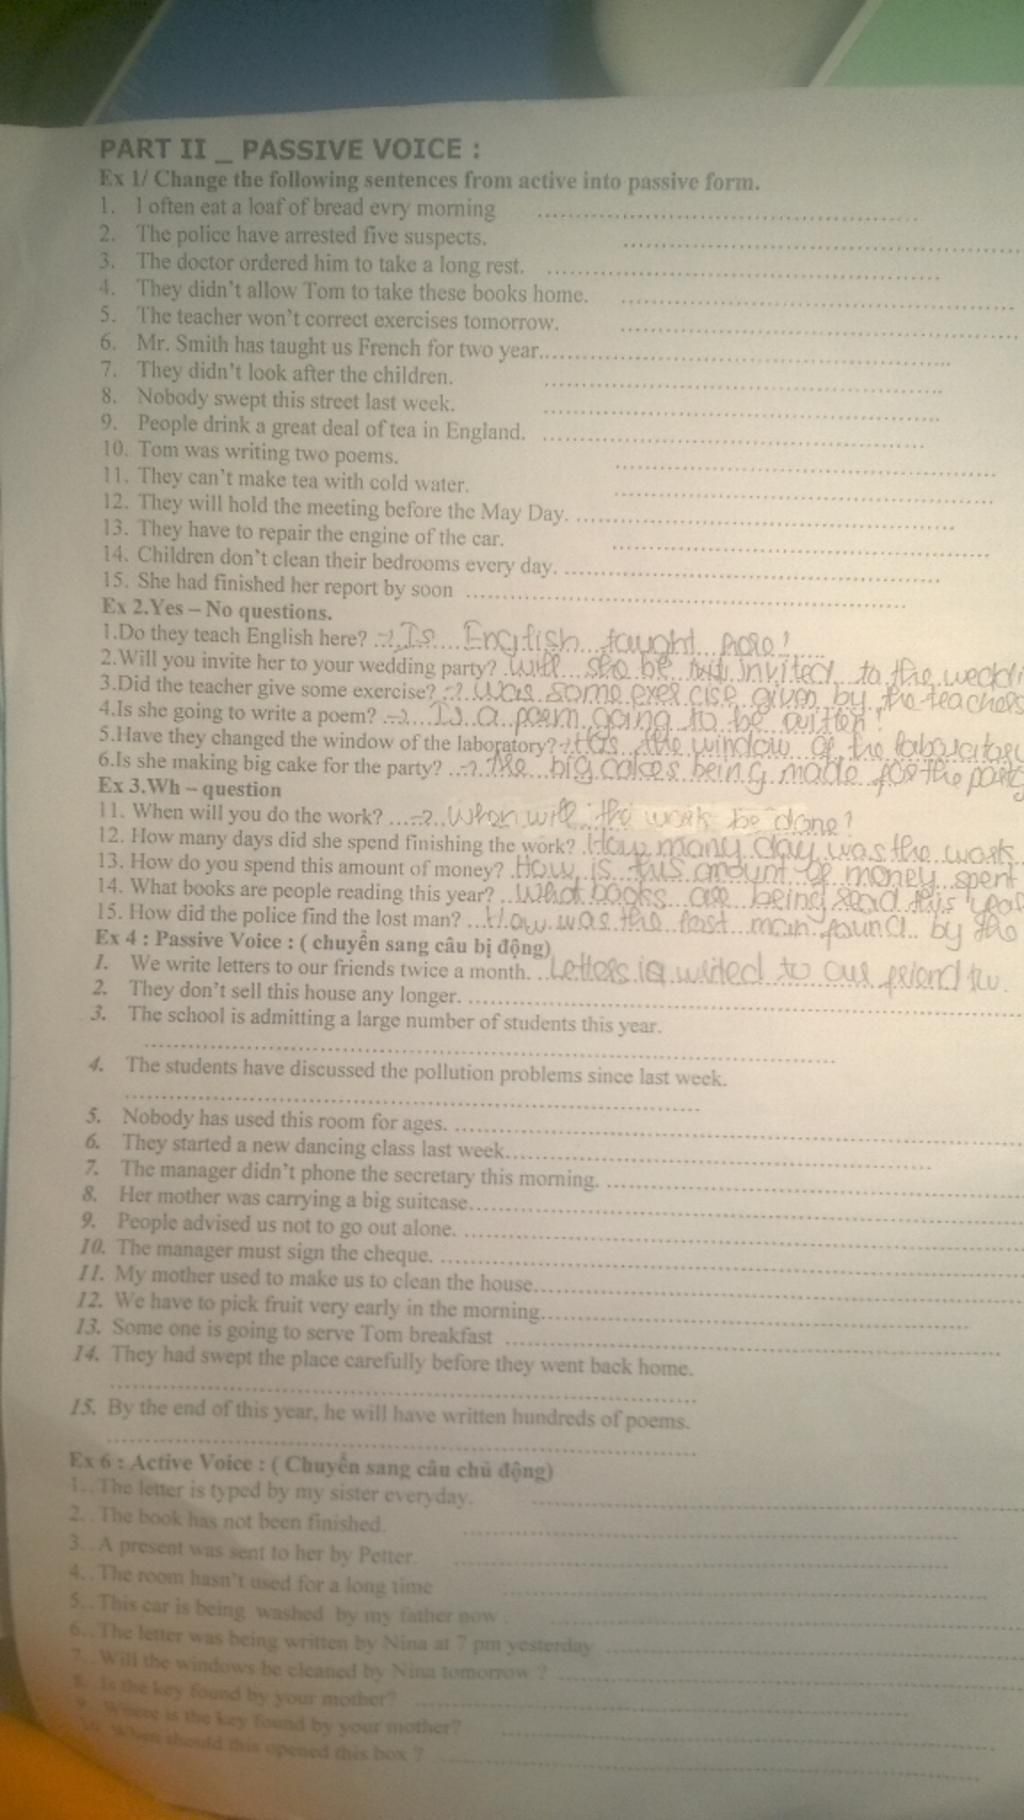 PART II _ PASSIVE VOICE :
Ex 1/ Change the following sentences from active into passive form.
1. I often eat a loaf of bread evry morning ........
2. The police have arrested five suspects. ........
3. The doctor ordered him to take a long rest. ........
4. They didn't allow Tom to take these books home. ........
5. The teacher won't correct exercises tomorrow. ........
6. Mr. Smith has taught us French for two year........
7. They didn't look after the children. ........
8. Nobody swept this street last week. ........
9. People drink a great deal of tea in England. ........
10. Tom was writing two poems. ........
11. They can't make tea with cold water. ........
12. They will hold the meeting before the May Day. ........
13. They have to repair the engine of the car. ........
14. Children don't clean their bedrooms every day. ........
15. She had finished her report by soon ........
Ex 2.Yes – No questions.
1.Do they teach English here? → Is English taught here?
2.Will you invite her to your wedding party? Will she be invited to the weddi
3.Did the teacher give some exercise? → Was some exercise given by the teachers
4.Is she going to write a poem? → Is a poem going to be written?
5.Have they changed the window of the laboratory? → Has the window of the laboratory
6.Is she making big cake for the party? → Are big cakes being made for the party
Ex 3.Wh – question
11. When will you do the work? → When will the work be done?
12. How many days did she spend finishing the work? How many day was the work
13. How do you spend this amount of money? How is this amount of money spent
14. What books are people reading this year? What books are being read this year
15. How did the police find the lost man? How was the lost man found by the
Ex 4 : Passive Voice : ( chuyển sang câu bị động)
1. We write letters to our friends twice a month. Letters is writed to our friend tw
2. They don't sell this house any longer. ........
3. The school is admitting a large number of students this year.
........
4. The students have discussed the pollution problems since last week.
........
5. Nobody has used this room for ages. ........
6. They started a new dancing class last week........
7. The manager didn't phone the secretary this morning. ........
8. Her mother was carrying a big suitcase........
9. People advised us not to go out alone. ........
10. The manager must sign the cheque. ........
11. My mother used to make us to clean the house........
12. We have to pick fruit very early in the morning........
13. Some one is going to serve Tom breakfast ........
14. They had swept the place carefully before they went back home.
........
15. By the end of this year, he will have written hundreds of poems.
........
Ex 6 : Active Voice : ( Chuyển sang câu chủ động)
1. . The letter is typed by my sister everyday. ........
2. . The book has not been finished. ........
3. . A present was sent to her by Petter. ........
4. . The room hasn't used for a long time ........
5. . This car is being washed by my father now . ........
6. . The letter was being written by Nina at 7 pm yesterday ........
7. . Will the windows be cleaned by Nina tomorrow ? ........
8. Is the key found by your mother? ........
9. Where is the key found by your mother? ........
10. When should this opened this box ? ........